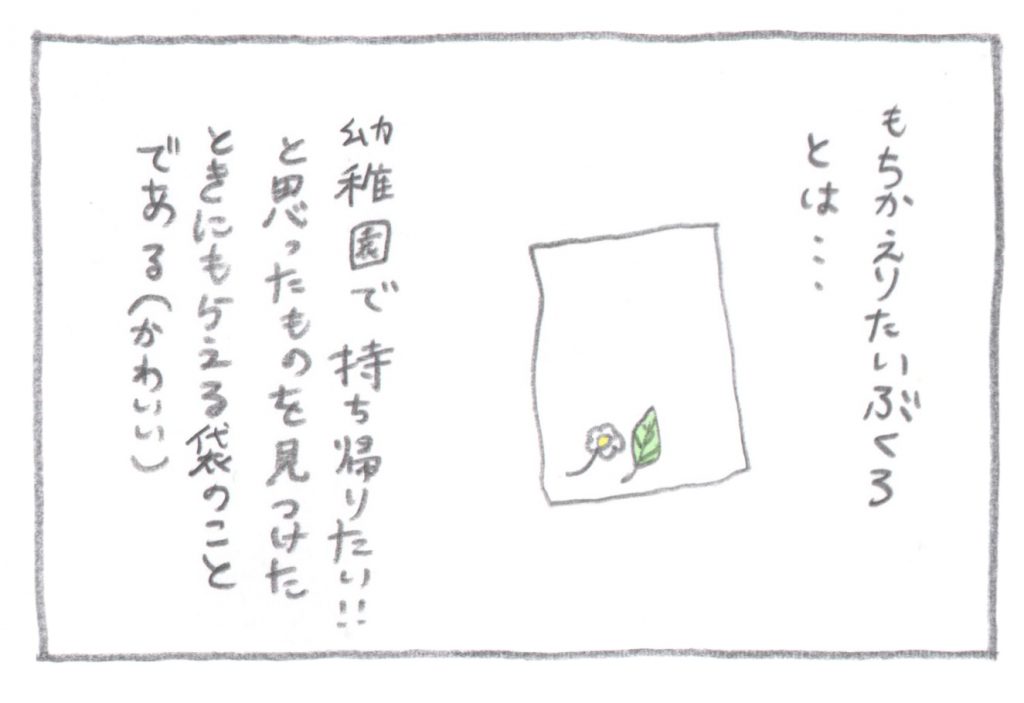 もちかえりたいぶくろ
とは・・・
幼稚園で持ち帰りたい!!
と思ったものを見つけた
ときにもらえる袋のこと
である(かわいい)